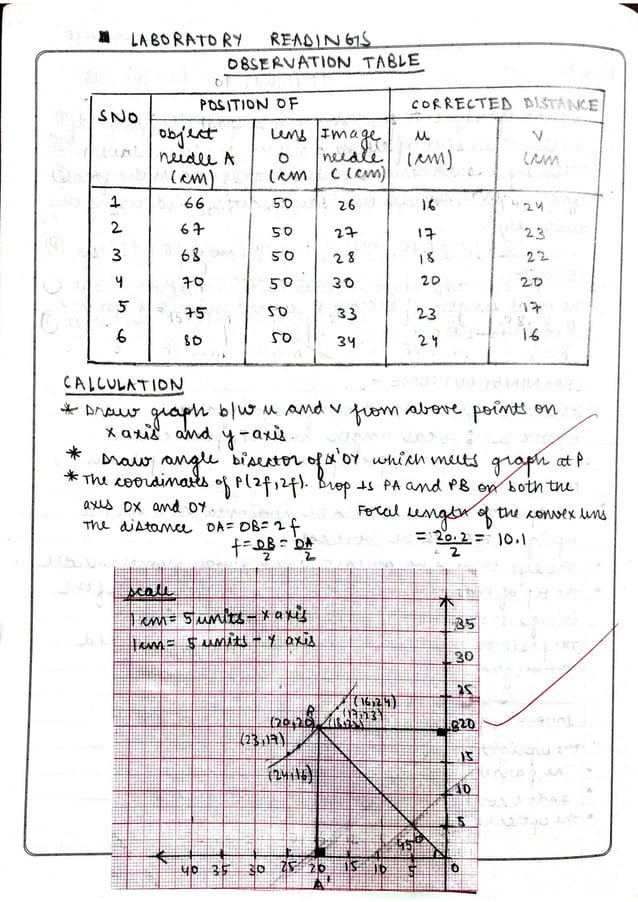 LABORATORY READINGS
OBSERVATION TABLE
SNO POSITION OF CORRECTED DISTANCE
object needle A (cm) lens O (cm Image needle C (cm) u (cm) v (cm
1 66 50 26 16 24
2 67 50 27 17 23
3 68 50 28 18 22
4 70 50 30 20 20
5 75 50 33 23 17
6 80 50 34 24 16
CALCULATION
* Draw graph b/w u and v from above points on
x axis and y-axis
* Draw angle bisector of x'OY which meets graph at P.
* The coordinates of P(2f,2f). Drop ⊥s PA and PB on both the
axis OX and OY. Focal length of the convex lens
The distance OA = OB = 2f = 20.2/2 = 10.1
f = OB/2 = OA/2
scale
1 cm = 5 units - x axis
1 cm = 5 units - Y axis
35
30
25
(16,24)
(17,23)
(18,22)
(20,20)
B20
(23,17)
15
(24,16)
10
5
45°
40 35 30 25 20 15 10 5 0
A'